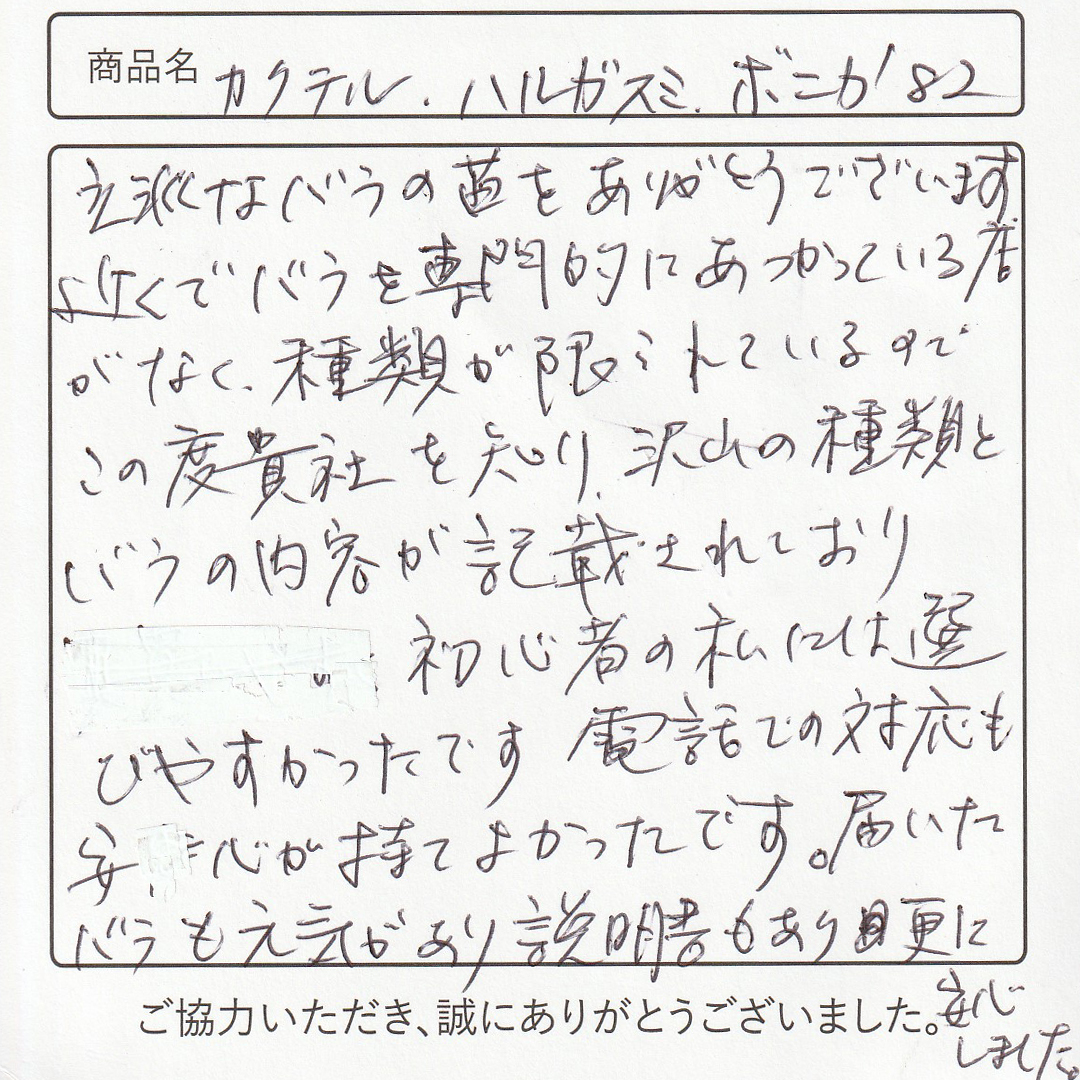 商品名 カクテル.ハルガスミ.ボニカ'82
立派なバラの苗をありがとうございます
近くでバラを専門的にあつかっている店
がなく、種類が限られているので
この度貴社を知り、沢山の種類と
バラの内容が記載されており
初心者の私には選
びやすかったです 電話での対応も
安心が持てよかったです。届いた
バラも元気があり説明書もあり更に
安心
しました。
ご協力いただき、誠にありがとうございました。